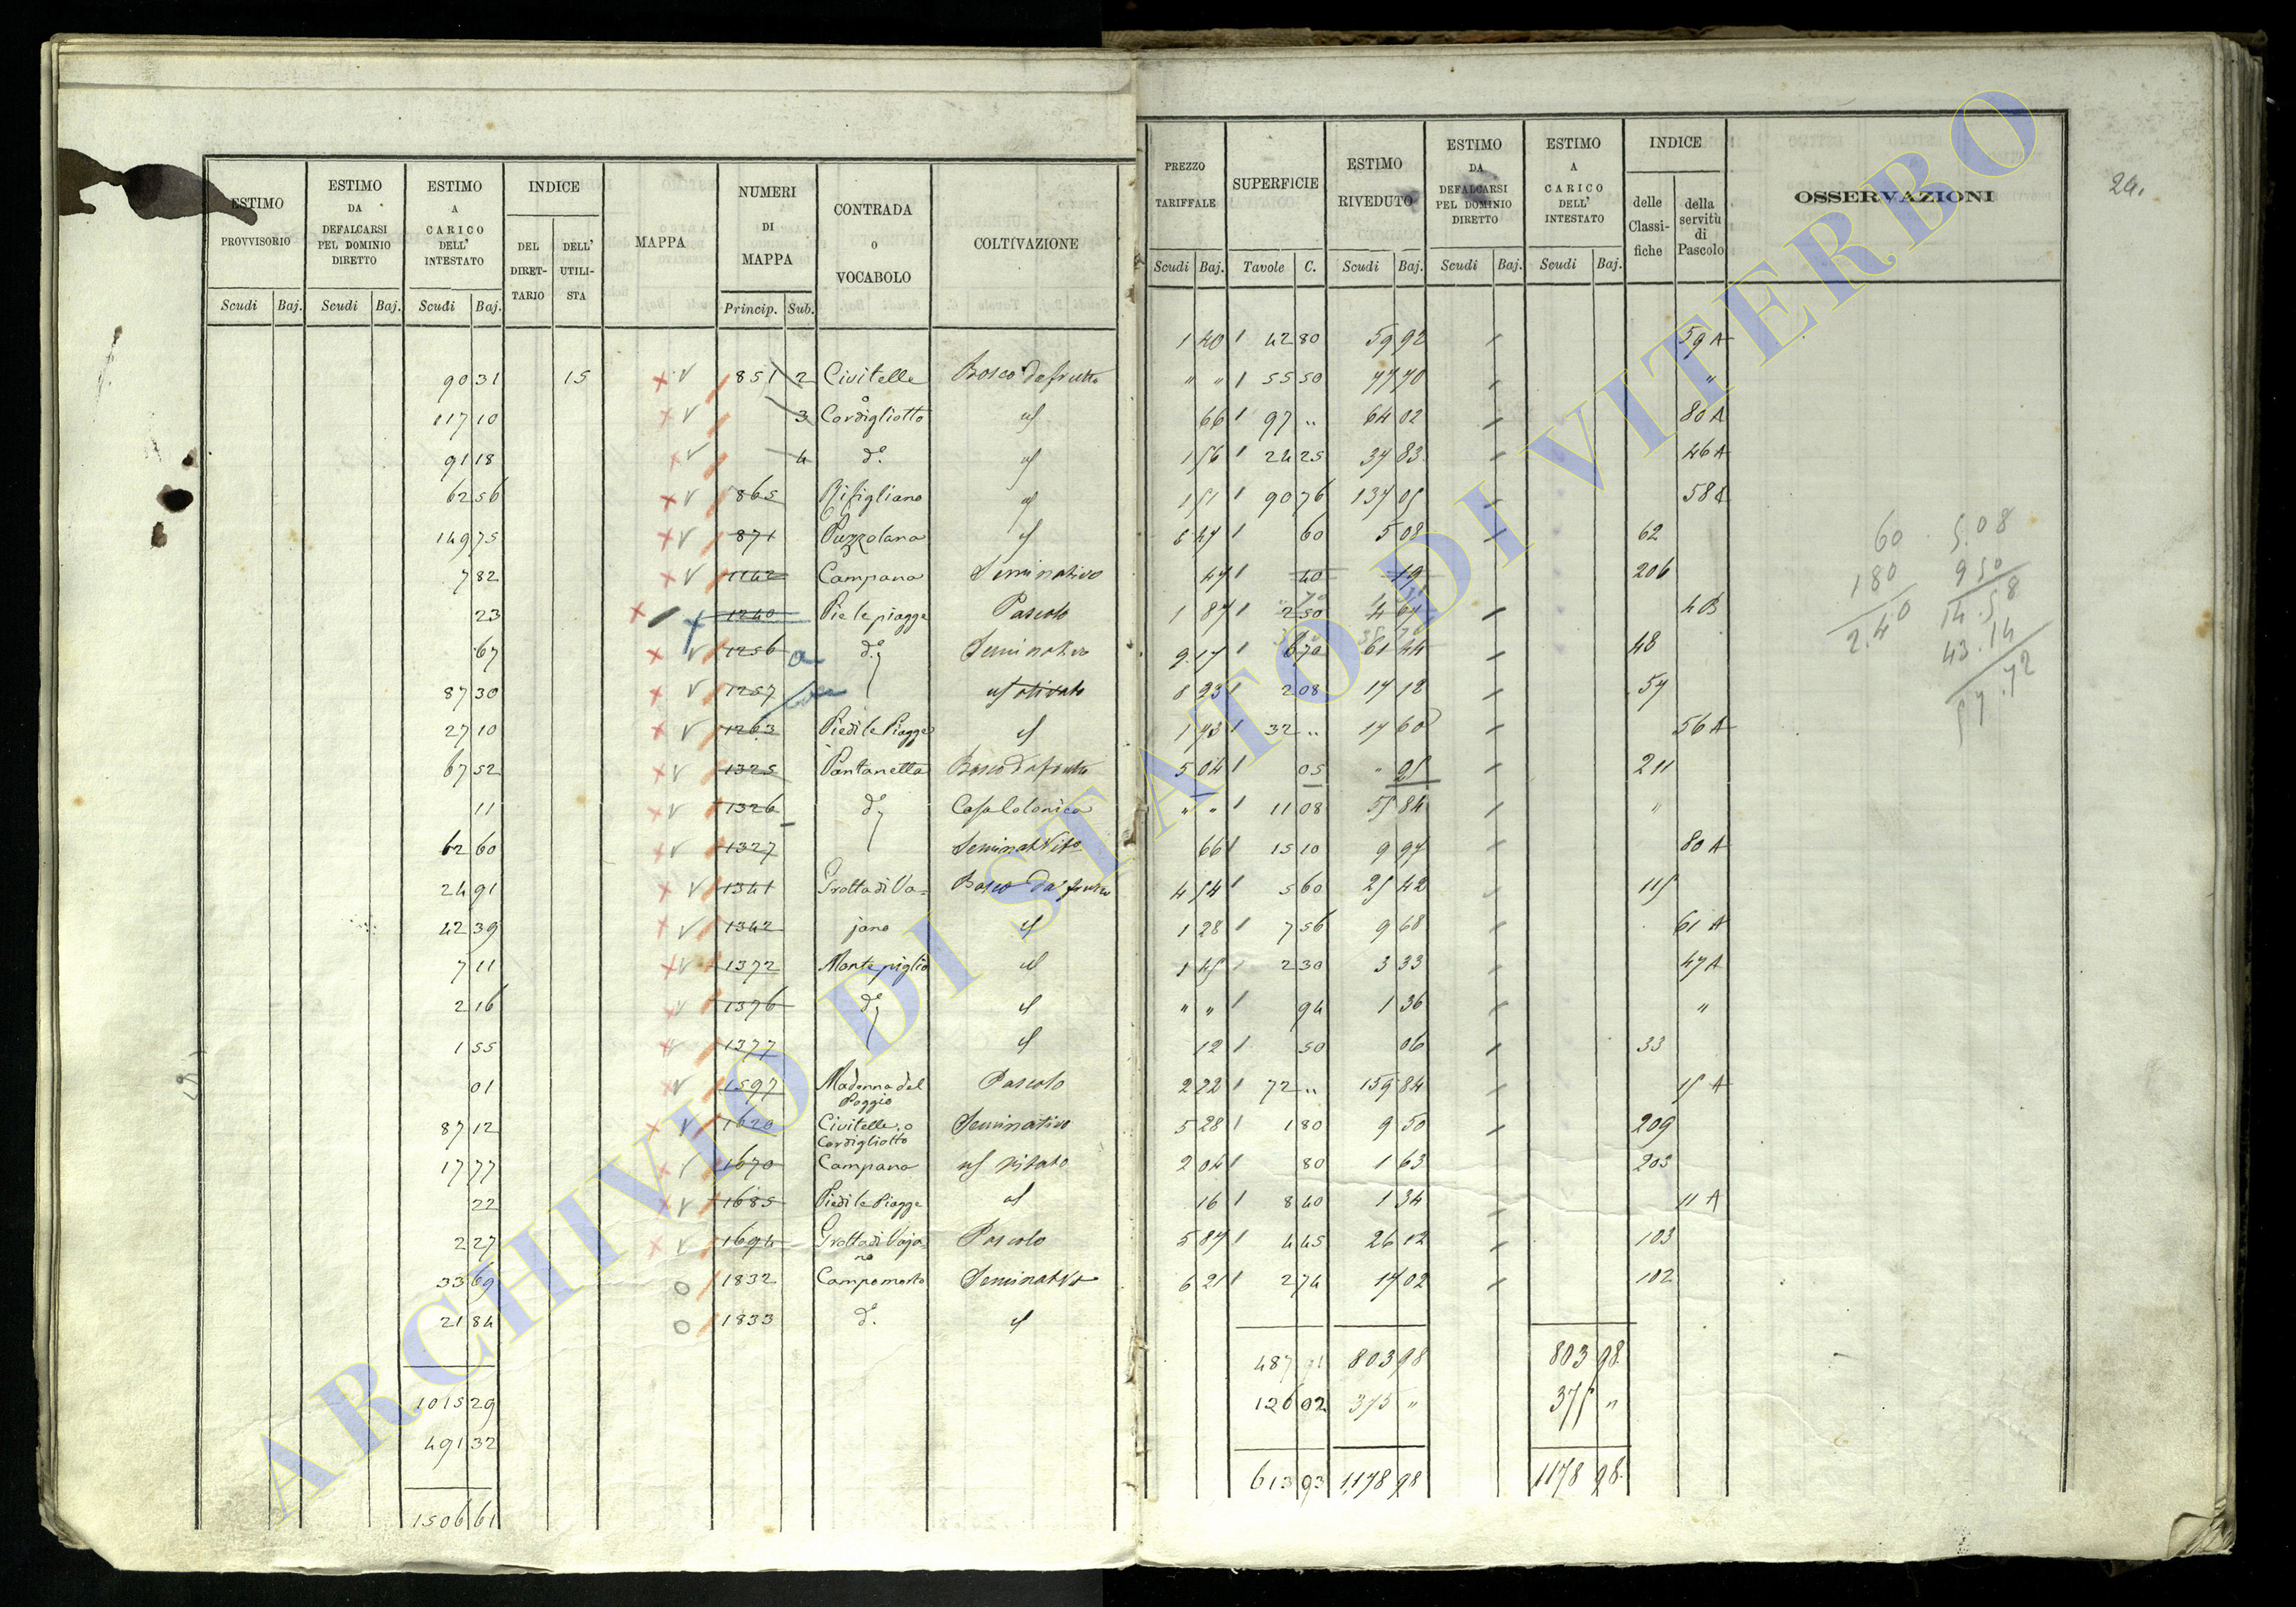 24.
ESTIMO PROVVISORIO
ESTIMO DA DEFALCARSI PEL DOMINIO DIRETTO
ESTIMO A CARICO DELL' INTESTATO
INDICE
DEL DIRETTARIO
DELL' UTILISTA
MAPPA
NUMERI DI MAPPA
CONTRADA O VOCABOLO
COLTIVAZIONE
Scudi Baj. Scudi Baj. Scudi Baj. Princip. Sub.
90 31 15 851 2 Civitelle o Bosco da frutto
117 10 3 Cordigliotto
91 18 4 d.°
62 56 865
149 75 871 Puzzolana
7 82 1142 Campana Seminativo
23 1240 Pie le piagge Pascolo
67 1256 a d.° Seminativo
87 30 1257 olivato
27 10 1263 Piedi le Piagge
67 52 1325 Pantanella Bosco da frutto
11 1326 d.° Casa Colonica
62 60 1327 Seminat Vito
24 91 1341 Grotta di Va= Bosco da frutto
42 39 1342 jano
7 11 1372 Montepiglio
2 16 1376 d.°
1 55 1377
01 1597 Madonna del Poggio Pascolo
87 12 1620 Civitelle, o Cordigliotto Seminativo
17 77 1670 Campana vitato
22 1685 Piedi le Piagge
2 27 1694 Grotta di Vajano Pascolo
33 69 1832 Campomorto Seminativo
21 84 1833 d.°
1015 29
491 32
1506 61
PREZZO TARIFFALE
SUPERFICIE
ESTIMO RIVEDUTO
ESTIMO DA DEFALCARSI PEL DOMINIO DIRETTO
ESTIMO A CARICO DELL' INTESTATO
INDICE
delle Classifiche
della servitù di Pascolo
OSSERVAZIONI
Scudi Baj. Tavole C. Scudi Baj. Scudi Baj. Scudi Baj.
1 40 42 80 59 92 59 A
" " 55 50 77 70 "
66 97 " 64 02 80 A
1 56 24 25 37 83 46 A
1 51 90 76 137 05 58 A
8 47 60 5 08 62
47 40 19 206
1 87 2 50 4 67 4 B
9 17 6 70 61 44 48
8 23 2 08 17 12 57
1 43 32 " 56 A
5 04 05 25 211
" " 11 08 55 84 "
66 15 10 9 97 80 A
4 54 5 60 25 42 115
1 28 7 56 9 68 61 A
1 45 2 30 3 33 47 A
" " 94 1 36 "
12 50 06 33
2 22 72 " 159 84 15 A
5 28 1 80 9 50 209
2 04 80 1 63 203
16 8 40 1 34 11 A
5 87 4 45 26 12 103
6 21 2 74 17 02 102
487 91 803 98 803 98
126 02 375 " 375 "
613 93 1178 98 1178 98
60 5.08
180 9 50
2.40 14.58
43.14
57.72
ARCHIVIO DI STATO DI VITERBO